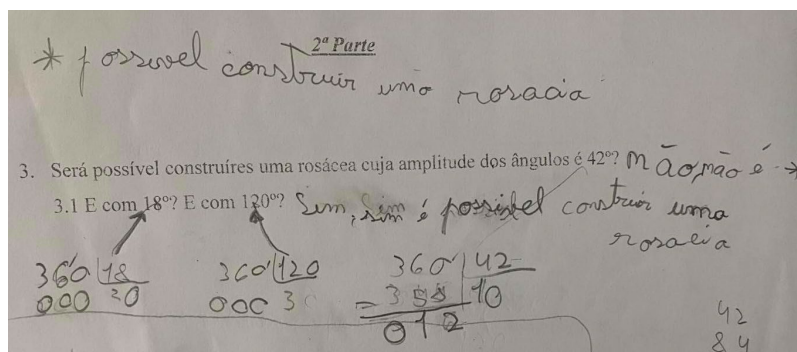 2ª Parte
* possivel construir uma rosacia
3. Será possível construíres uma rosácea cuja amplitude dos ângulos é 42º? Não, não é →
3.1 E com 18º? E com 120º? Sim, sim é possivel construir uma
rosacia
360 18 360 120 360 42
000 20 000 3 10
012
42
84